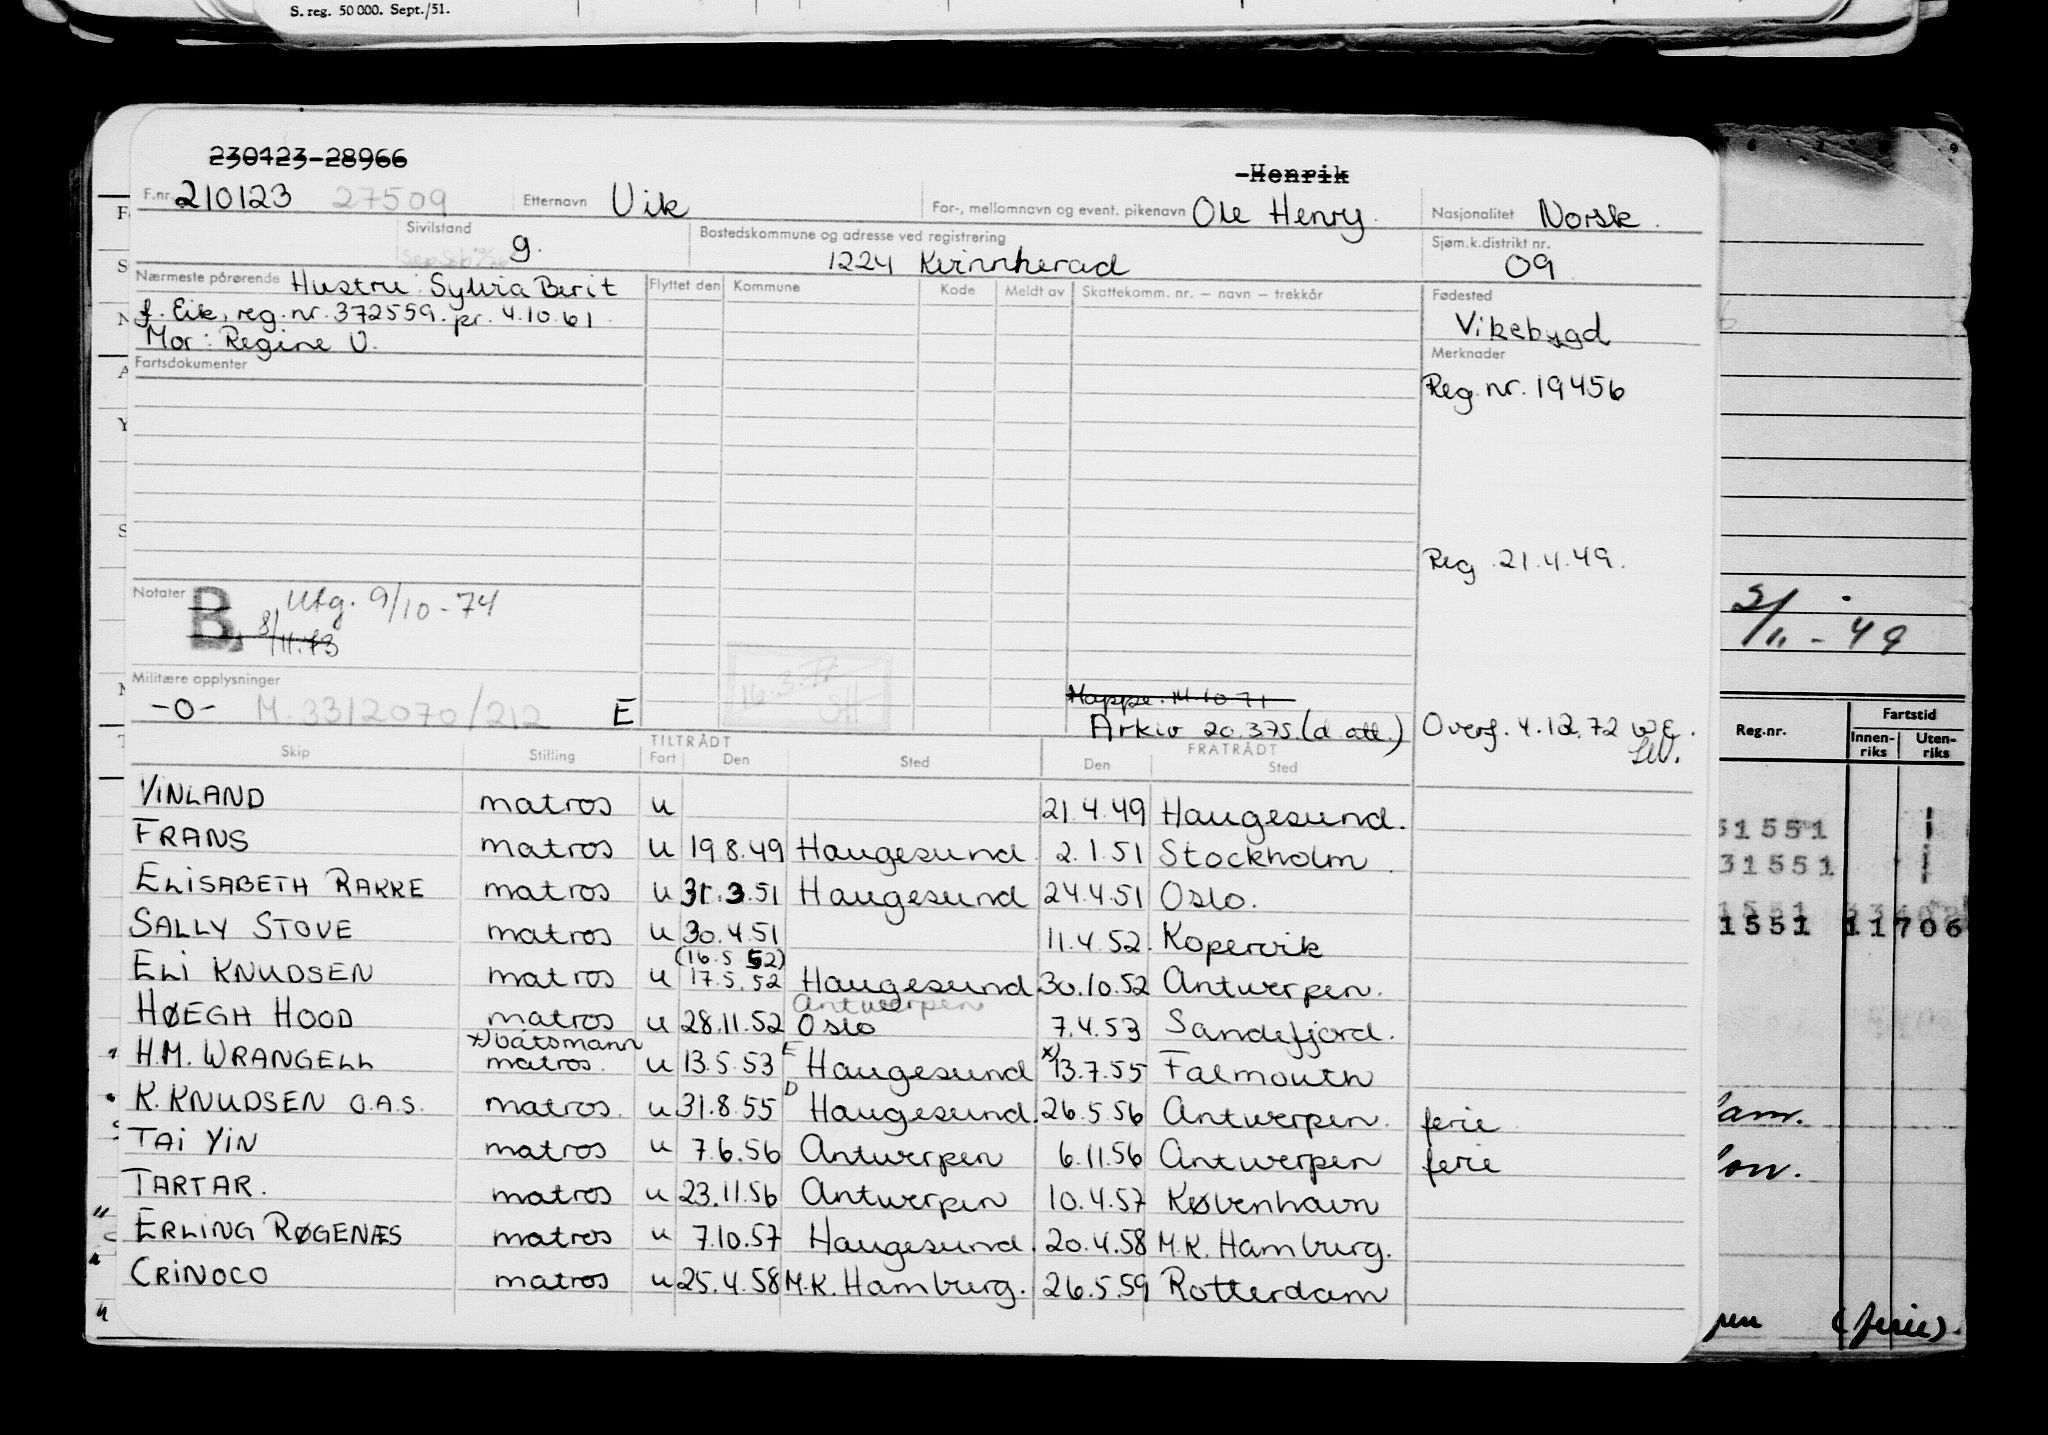 S. reg. 50 000. Sept./51.
230123-28966
-Henrik
F.nr. 210123 27509 Etternavn Vik For-, mellomnavn og event. pikenavn Ole Henry. Nasjonalitet Norsk.
Sivilstand g. Bostedskommune og adresse ved registrering 1224 Kvinnherad Sjøm.k.distrikt nr. 09
Nærmeste pårørende Hustru: Sylvia Berit Flyttet den Kommune Kode Meldt av Skattekomm. nr. – navn – trekkår Fødested
f. Eik, reg.nr. 372559. pr. 4.10.61. Vikebygd
Mor: Regine V. Merknader
Fartsdokumenter
Reg.nr. 19456
Reg. 21.4.49.
Notater B, Utg. 9/10-74
8/11.73
2/11-49
Militære opplysninger
-0- M.3312070/212 E
Mappe. 14.10.71
Arkiv 20.375.(d. att.) Overf. 4.12.72 WE.
Skip Stilling TILTRÅDT Fart Den Sted FRATRÅDT Den Sted
Reg.nr. Fartstid Innen-riks Uten-riks
VINLAND matros u 21.4.49 Haugesund.
FRANS matros u 19.8.49 Haugesund. 2.1.51 Stockholm.
ELISABETH BAKKE matros u 31.3.51 Haugesund 24.4.51 Oslo.
SALLY STOVE matros u 30.4.51 11.4.52. Kopervik
(16.5.52)
ELI KNUDSEN matros u 17.5.52 Haugesund 30.10.52 Antwerpen.
Antwerpen
HØEGH HOOD matros u 28.11.52 Oslo 7.4.53 Sandefjord.
x) båtsmann
H.M. WRANGELL matros. u 13.5.53 E Haugesund x) 13.7.55 Falmouth
K. KNUDSEN O.A.S. matros. u 31.8.55 D Haugesund. 26.5.56 Antwerpen. ferie
TAI YIN matros u 7.6.56 Antwerpen 6.11.56 Antwerpen ferie
TARTAR. matros u 23.11.56 Antwerpen 10.4.57 København
ERLING RØGENÆS matros u 7.10.57 Haugesund. 20.4.58 M.K. Hamburg.
CRINOCO matros u 25.4.58 M.K. Hamburg. 26.5.59 Rotterdam
31551
1551 11706
(ferie).